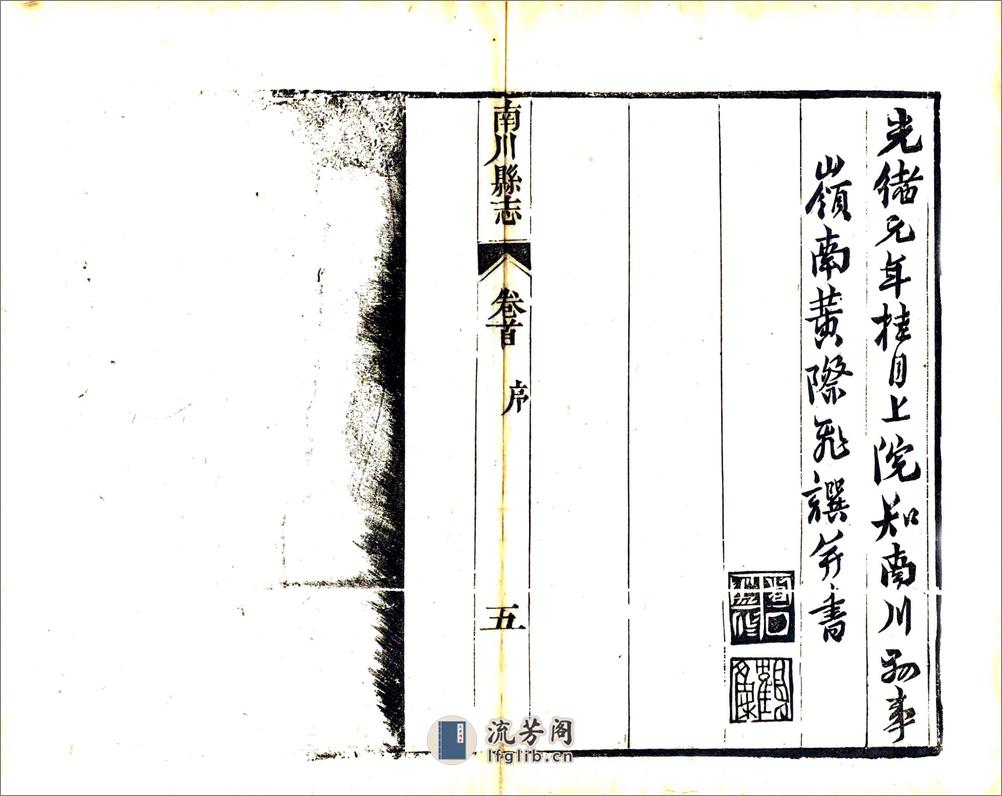 光緒元年桂月上院知南川縣事
嶺南黃際飛譔并書
南川縣志
卷首
序
五
流芳阁
lfglib.cn